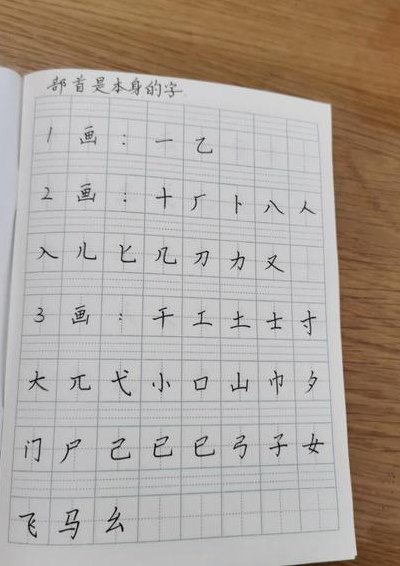 部首是本身的字
1画：一乙
2画：十厂卜八人
入儿匕几刀力又
3画：干工土士寸
大兀弋小口山巾夕
门尸己已巳弓子女
飞马幺